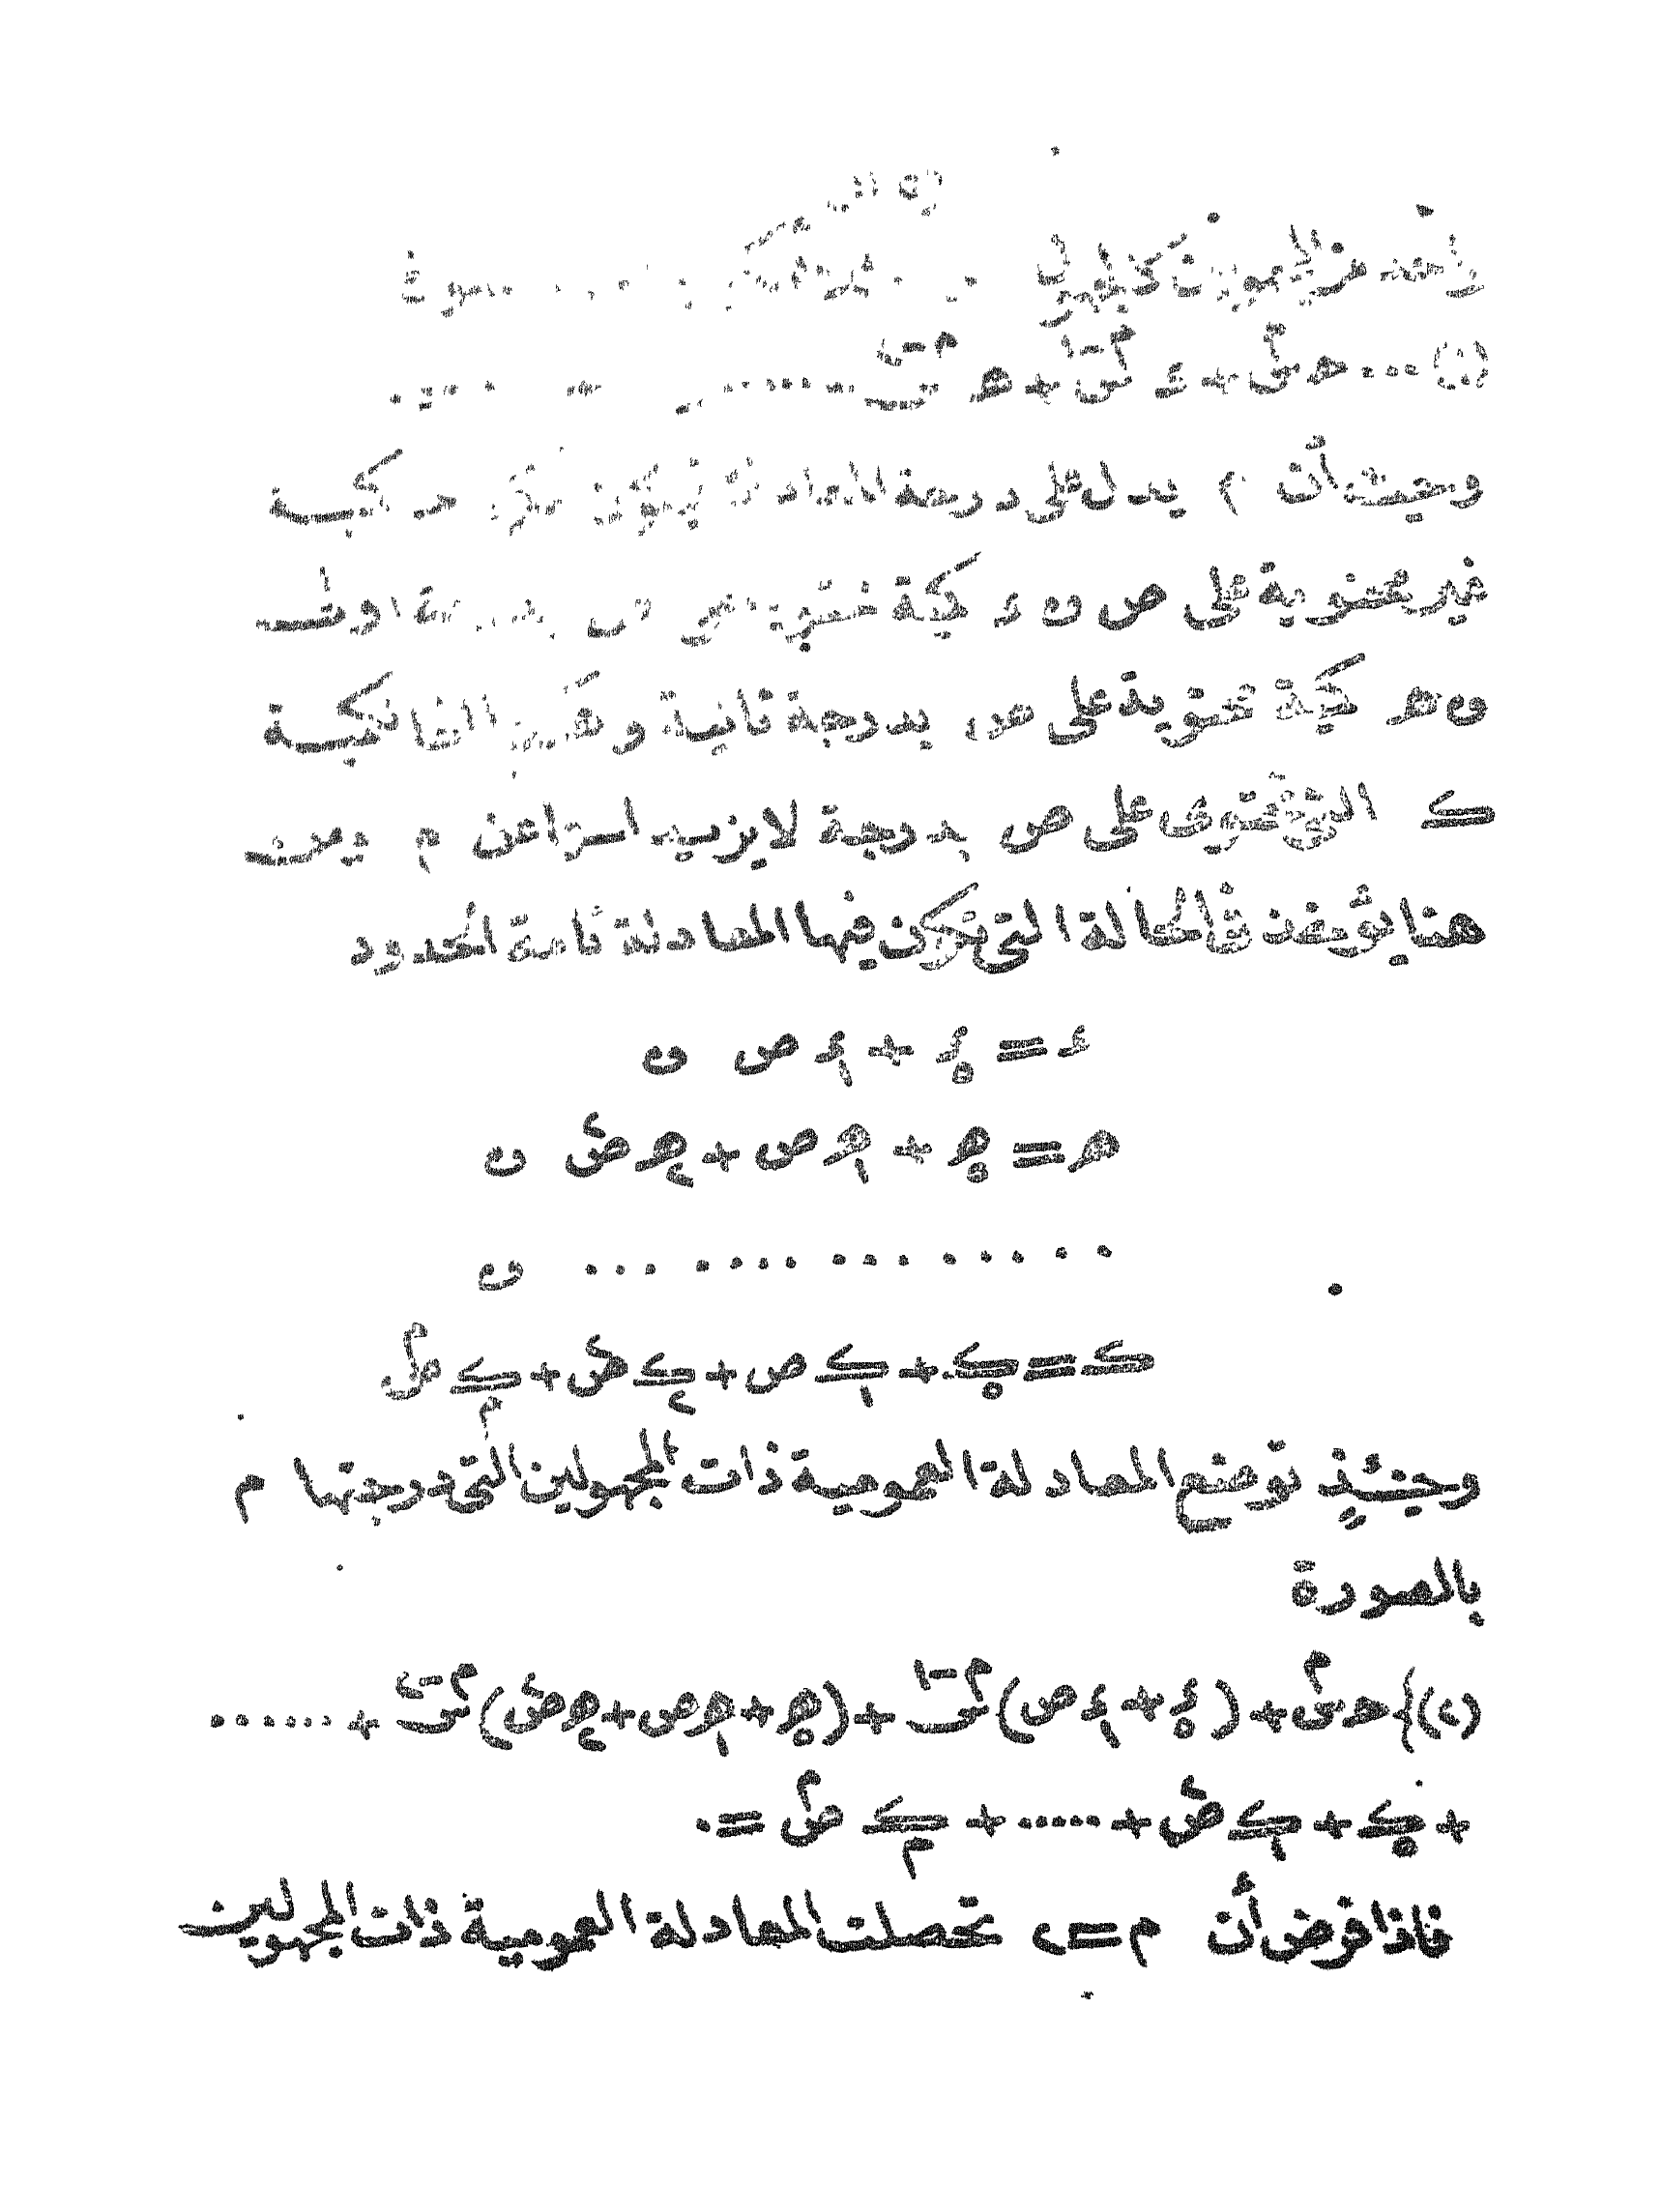 واحد من المجهولات كالمجهول
(١) ... حـ سم + ء سم-١ + هـ سم-٢ ........
وحيث أن م يدل على درجة المعادلة تكون حـ كمية
غير محتوية على ص و ء كمية محتوية على ص بدرجة أولى
و هـ كمية محتوية على ص بدرجة ثانية وهكذا الى الكمية
ك التى تحتوى على ص بدرجة لا يزيد اسها عن م ومن
هنا يؤخذ فى الحالة التى تكون فيها المعادلة تامة الحدود
ء = ء٠ + ء١ ص و
هـ = هـ٠ + هـ١ ص + هـ٢ ص٢ و
.............. و
ك = ك٠ + ك١ ص + ك٢ ص٢ + كم صم
وحينئذ توضع المعادلة العمومية ذات المجهولين التى درجتها م
بالصورة
(٢) { حـ سم + (ء٠ + ء١ ص) سم-١ + (هـ٠ + هـ١ ص + هـ٢ ص٢) سم-٢ + ......
+ ك٠ + ك١ ص٢ + ..... + كم صم = ٠
فاذا فرض أن م = ٢ تحصلت المعادلة العمومية ذات المجهولين